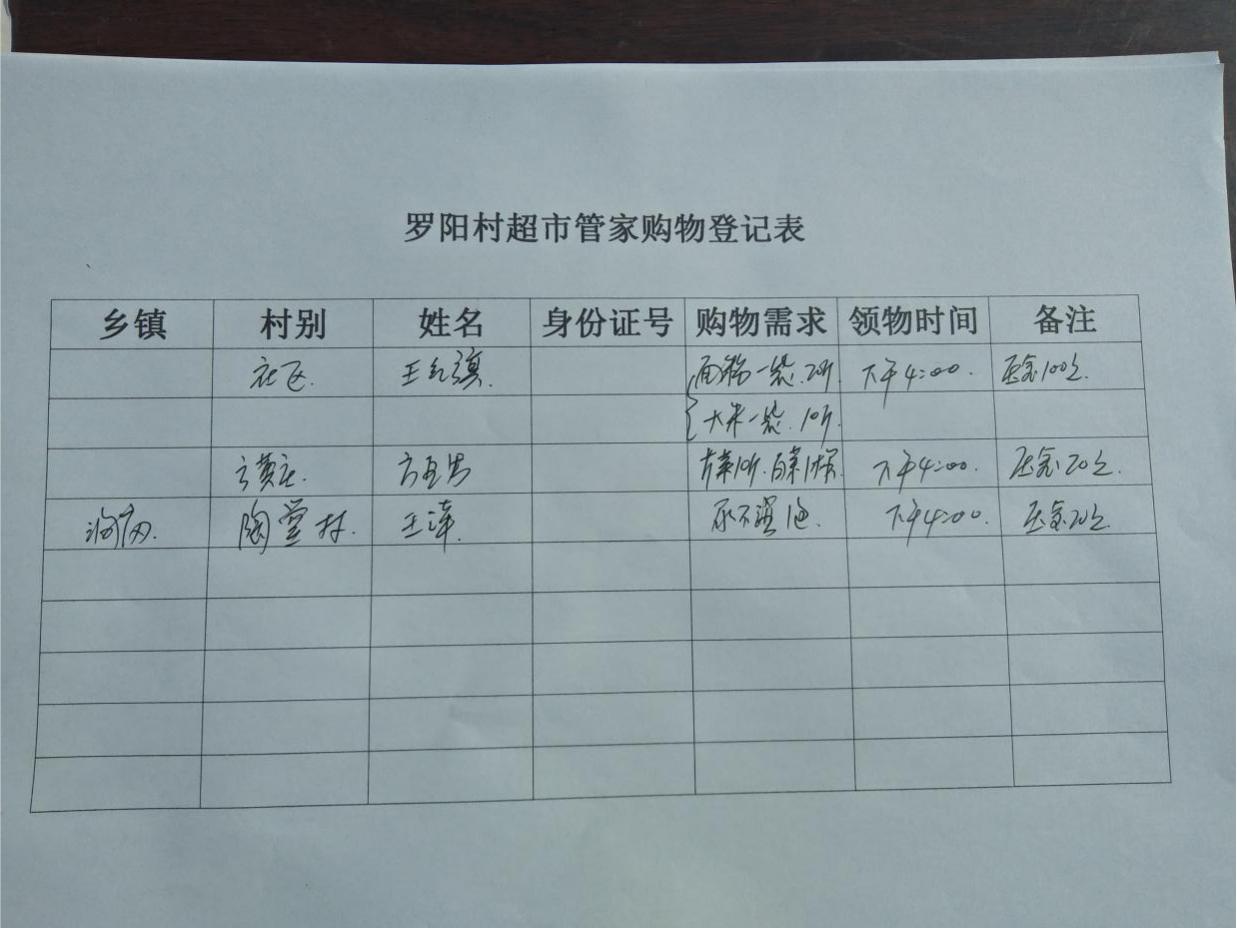 罗阳村超市管家购物登记表
乡镇 村别 姓名 身份证号 购物需求 领物时间 备注
社区. 王红旗. 面粉一袋.20斤. 下午4:00. 压金100元.
大米一袋.10斤.
方黄庄. 10斤.白菜 下午4:00. 压金20元.
陶堂村. 王萍. 尿不湿1包. 下午4:00. 压金20元.